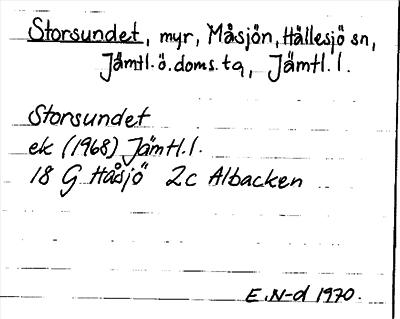 Storsundet, myr, Måsjön, Hällesjö sn,
Jämtl.ö.doms.tg, Jämtl.l.
Storsundet
ek (1968) Jämtl.l.
18 G Håsjö 2c Albacken
E.N-d 1970.